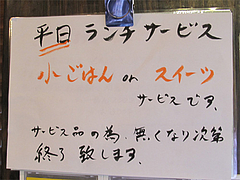 平日 ランチサービス
小ごはん or スイーツ
サービスです.
サービス品の為、無くなり次第
終了致します.